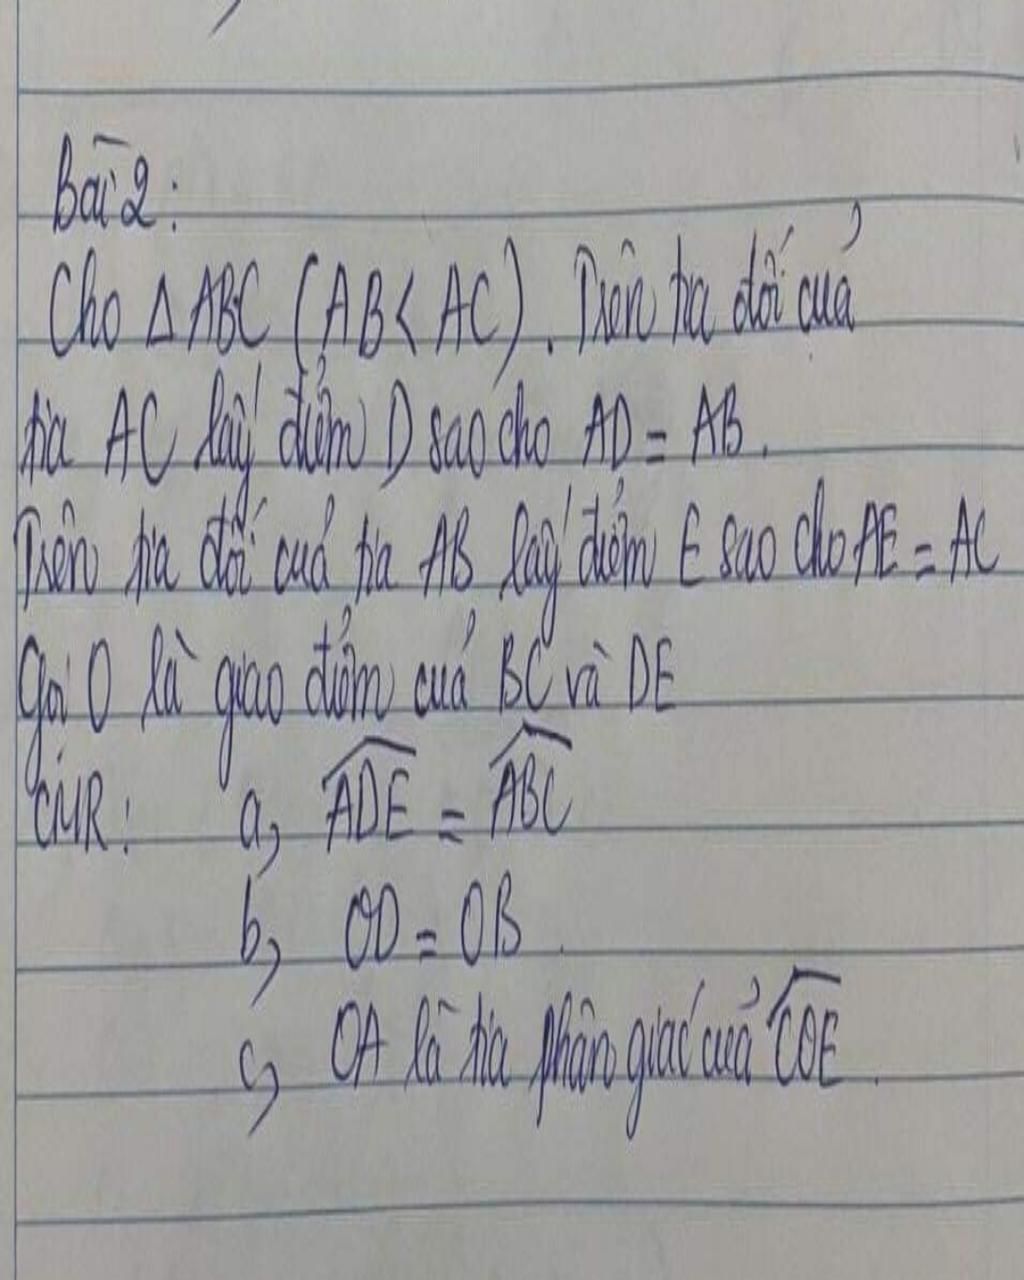 Bài 2:
Cho Δ ABC (AB < AC). Trên tia đối của
tia AC lấy điểm D sao cho AD = AB.
Trên tia đối của tia AB lấy điểm E sao cho AE = AC
Gọi O là giao điểm của BC và DE
CMR: a, \widehat{ADE} = \widehat{ABC}
b, OD = OB.
c, OA là tia phân giác của \widehat{COE}.